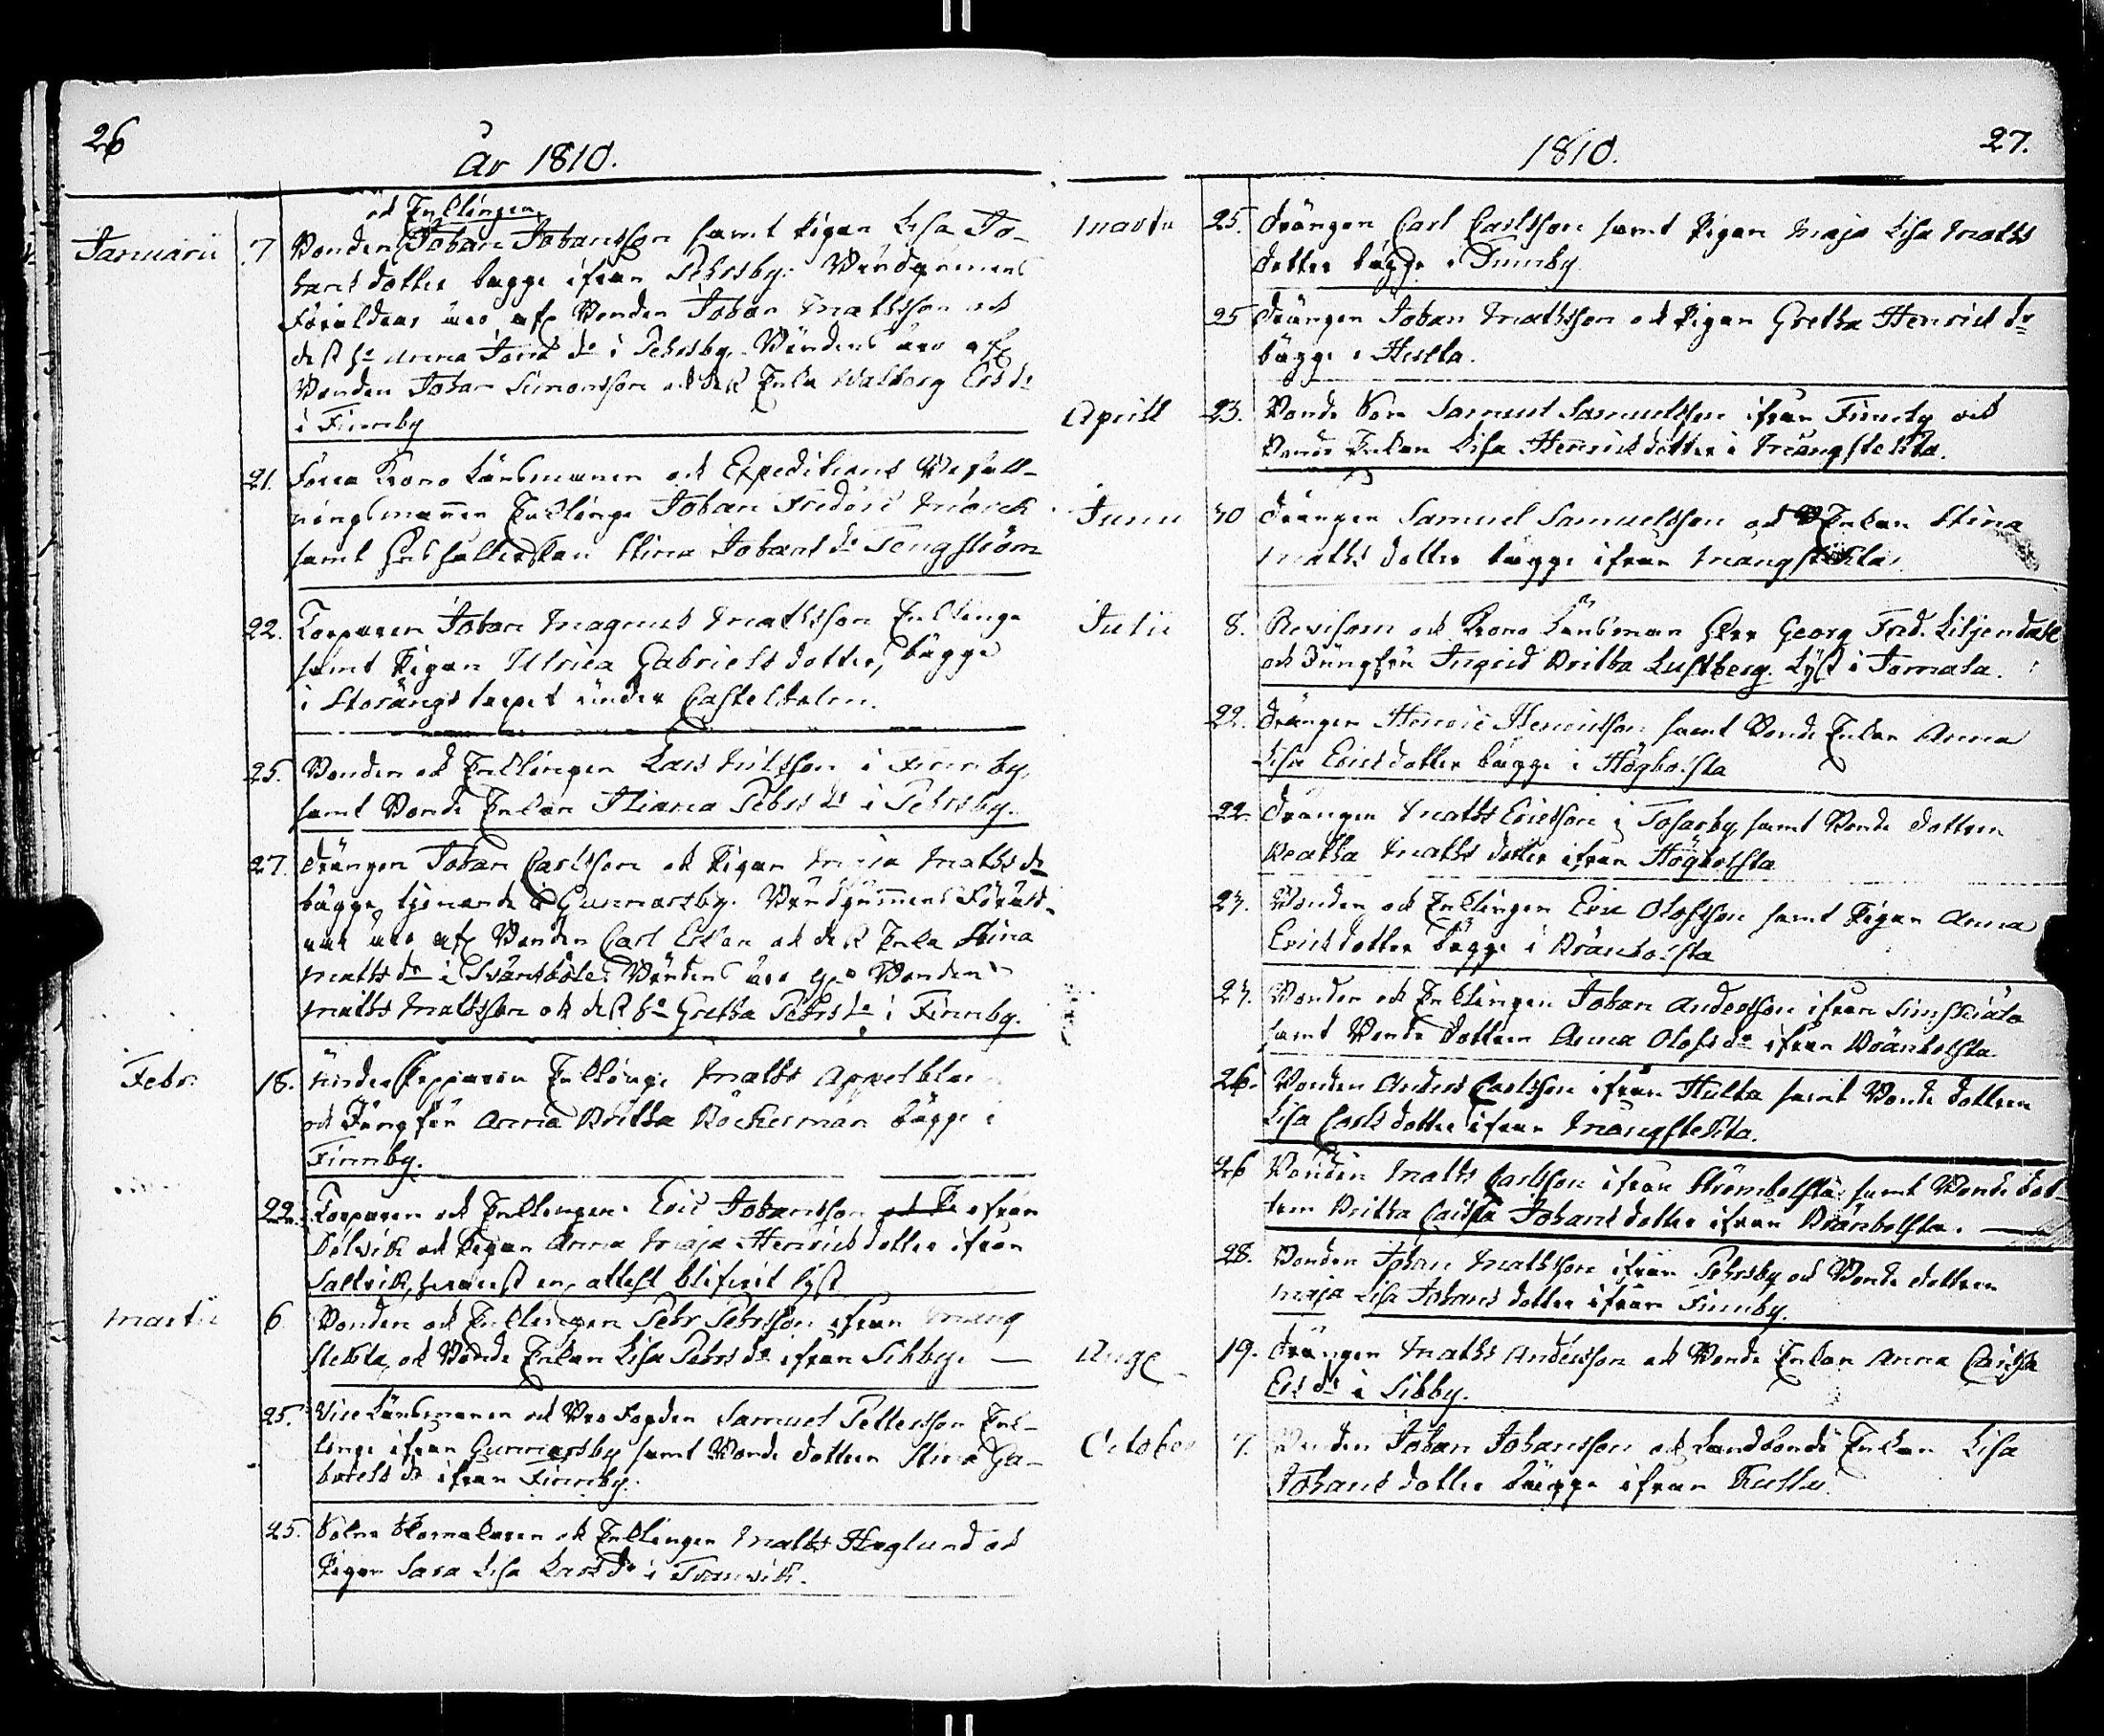 26
År 1810.
och Enklingen
Januarii 7 Bonden Johan Johansson samt Pigan Lisa Jo-
hansdotter bägge ifrån Pehrsby. Brudgumens
Föräldrar äro afl. Bonden Johan Mathsson och
dess h: Anna i Pehrsby. Brudens äro afl.
Bonden Johan Simonsson och dess Enka Walborg Ersd:r
i Finnby
21. Förra Krono Länsmannen och Expeditions Befall-
ningsmannen Enklinge Johan Fredric Mörck
samt Hushållerskan Stina Johansd:r Tengström
22. Torparen Johan Magnus Mathsson Enklinge
samt Pigan Ulrica Gabrielsdotter, bägge
i Storängstorpet under Castelholm.
25. Bonden och Enklingen Lars Nilsson i Finnby,
samt Bonde Enkan Pehrsd:r i Pehrsby.
27. Drängen Johan Carlsson och Pigan Maja Mathsd:r
bägge tjenande i Gunnarsby. Brudgummens Föräld-
rar äro afl. Bonden Carl och dess Enka Stina
Mathsd:r i Svartsböle. Brudens äro Bonden
Maths Mathsson och dess h:u Gretha Pehrsd:r i Finnby.
Febr: 18. Underskepparen Enklinge Maths Appelblo
och Jungfru Anna Britha Böckerman bägge i
Finnby.
22. Torparen och Enklingen Eric Johansson ifrån
Ödkarby och Pigan Anna Maja Henricsdotter ifrån
Saltvik, hvarest en attest blifvit lyst
Martii 6 Bonden och Enklingen Pehr Pehrsson ifrån Mång
stekta, och Bonde Enkan Lisa Pehrsd:r ifrån Sibby. —
25. Vice Länsmannen och Bro Fogden Samuel Pettersson Enk-
linge ifrån Gunnarsby samt Bonde dottern Stina Ga-
brielsd:r ifrån Finnby.
25. Sochne Skomakaren och Enklingen Maths Haglund och
Pigan Sara Lisa Larsd:r i Tranvik.
1810. 27.
Martii 25. Drängen Carl Carlsson samt Pigan Maja Lisa Maths
dotter bägge i Finnby
25 Drängen Johan Mathsson och Pigan Gretha Henricsd:r
bägge i Hulta.
Aprill 23. Bonde Son Samuel Samuelsson ifrån Finnby och
Bonde Enkan Lisa Henricsdotter i Mångstekta.
Junii 10 Drängen Samuel Samuelsson och Enkan Stina
Mathsdotter bägge ifrån Mångstekta.
Julii 8. Revisorn och Krono Länsman Herr Georg Fred. Liljendahl
och Jungfru Ingrid Britha Lustberg. Lyst i Jomala.
22. Drängen Henric Henricsson samt Bonde Enkan Anna
Lisa Ericsdotter bägge i Högbolsta
22. Drängen Maths Ericsson i Tosarby samt Bonde dottren
Beatha Mathsdotter ifrån Högbolsta
23. Bonden och Enklingen Eric Olofsson samt Pigan Anna
Ericsdotter bägge i Bränbolsta
23. Bonden och Enklingen Johan Andersson ifrån Simskiäla
samt Bonde dottren Anna Olofsd:r ifrån Bränbolsta.
26. Bonden Anders Carlsson ifrån Hulta samt Bonde dottren
Lisa Carlsdotter ifrån Mångstekta.
26 Bonden Maths Carlsson ifrån Strömbolsta samt Bonde dot-
tern Britha Caisa Johansdotter ifrån Bränbolsta. —
28. Bonden Johan Mathsson ifrån Pehrsby och Bonde dottren
Maja Lisa Johansdotter ifrån Finnby.
Aug. 19. Drängen Maths Andersson och Bonde Enkan Anna Caisa
Ersd:r i Sibby.
October 7. Bonden Johan Johansson och Landbonde Enkan Lisa
Johansdotter bägge ifrån Kulla.